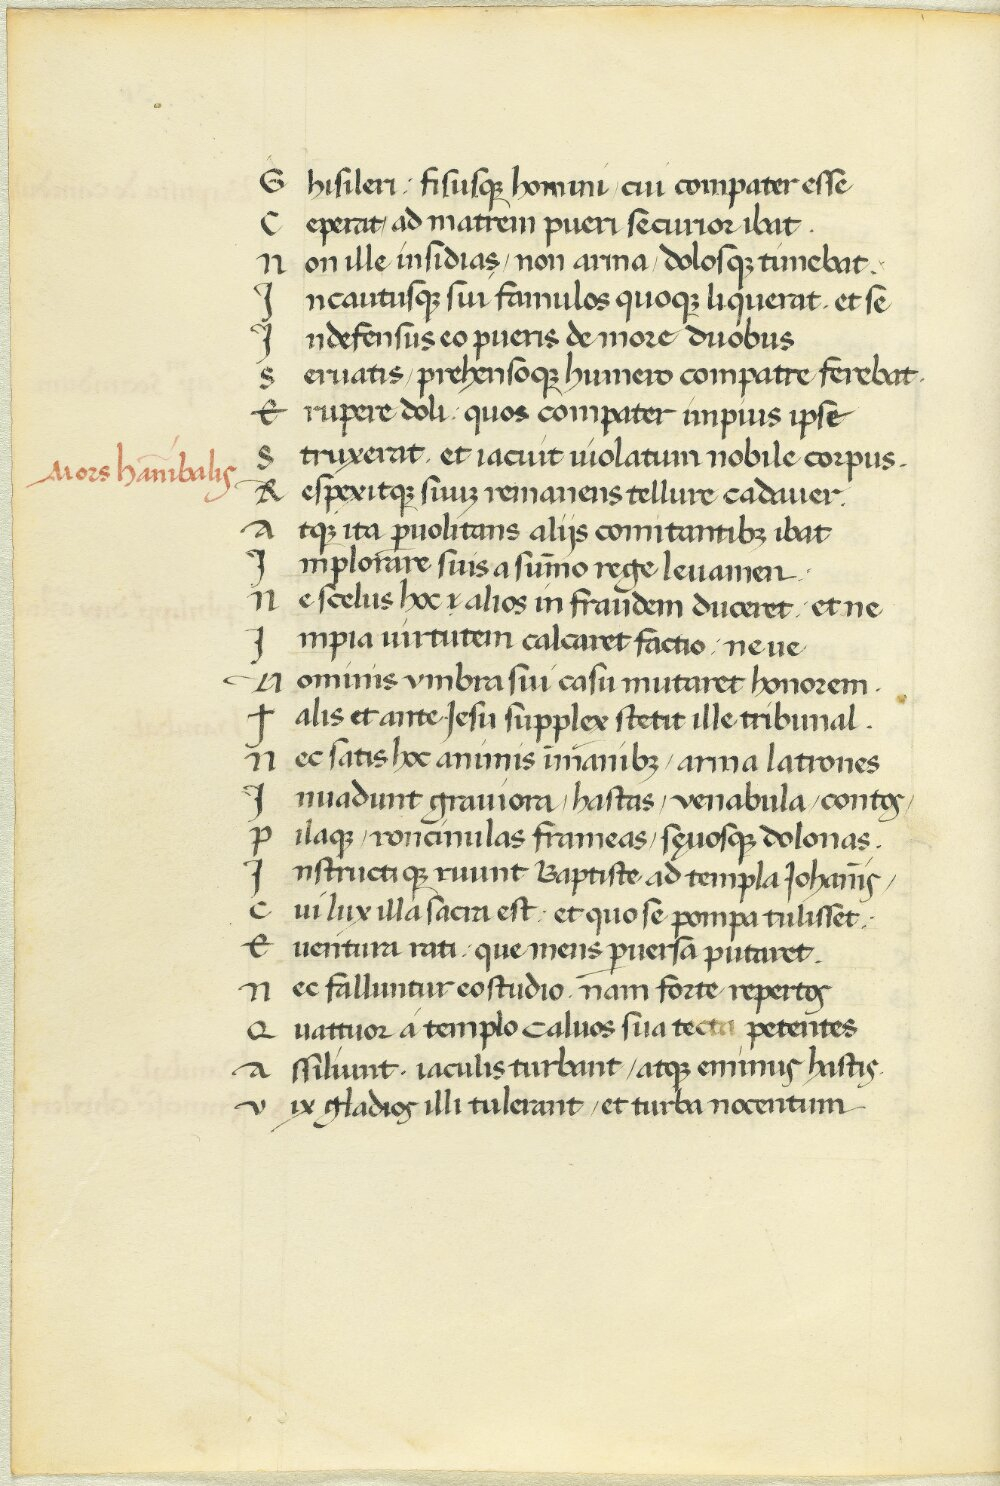 G hisileri : fisusqȝ homini / cui compater esse
C eperat / ad matrem pueri securior ibat .
N on ille insidias / non arma / dolosqȝ timebat .
I ncautusqȝ sui famulos quoqȝ liquerat . et se
I ndefensus eo pueris de more duobus
S eruatis / prehensoqȝ humero compatre ferebat .
E rupere doli : quos compater impius ipse
S truxerat . et iacuit uiolatum nobile corpus .
Mors han̄ibalis
R espexitqȝ suuȝ remanens tellure cadauer .
A tqȝ ita ꝑuolitans alijs comitantibȝ ibat
I mplorare suis a sum̄o rege leuamen .
N e scelus hoc & alios in fraudem duceret : et ne
I mpia uirtutem calcaret factio : neue
N ominis vmbra sui casu mutaret honorem .
T alis et ante Jesu supplex stetit ille tribunal .
N ec satis hoc animis im̄anibȝ / arma latrones
I nuadunt grauiora / hastas / venabula / contos /
P ilaqȝ / roncinulas frameas / sęuosqȝ dolonas .
I nstructiqȝ ruunt Baptiste ad templa Johan̄is /
C ui lux illa sacra est : et quo se pompa tulisset :
E uentura rati : que mens ꝑuersa putaret .
N ec falluntur eo studio . nam forte repertos
Q uattuor a templo Caluos sua tecta petentes
A ssiliunt . iaculis turbant / atqȝ eminus hastis .
V ix gladios illi tulerant / et turba nocentum